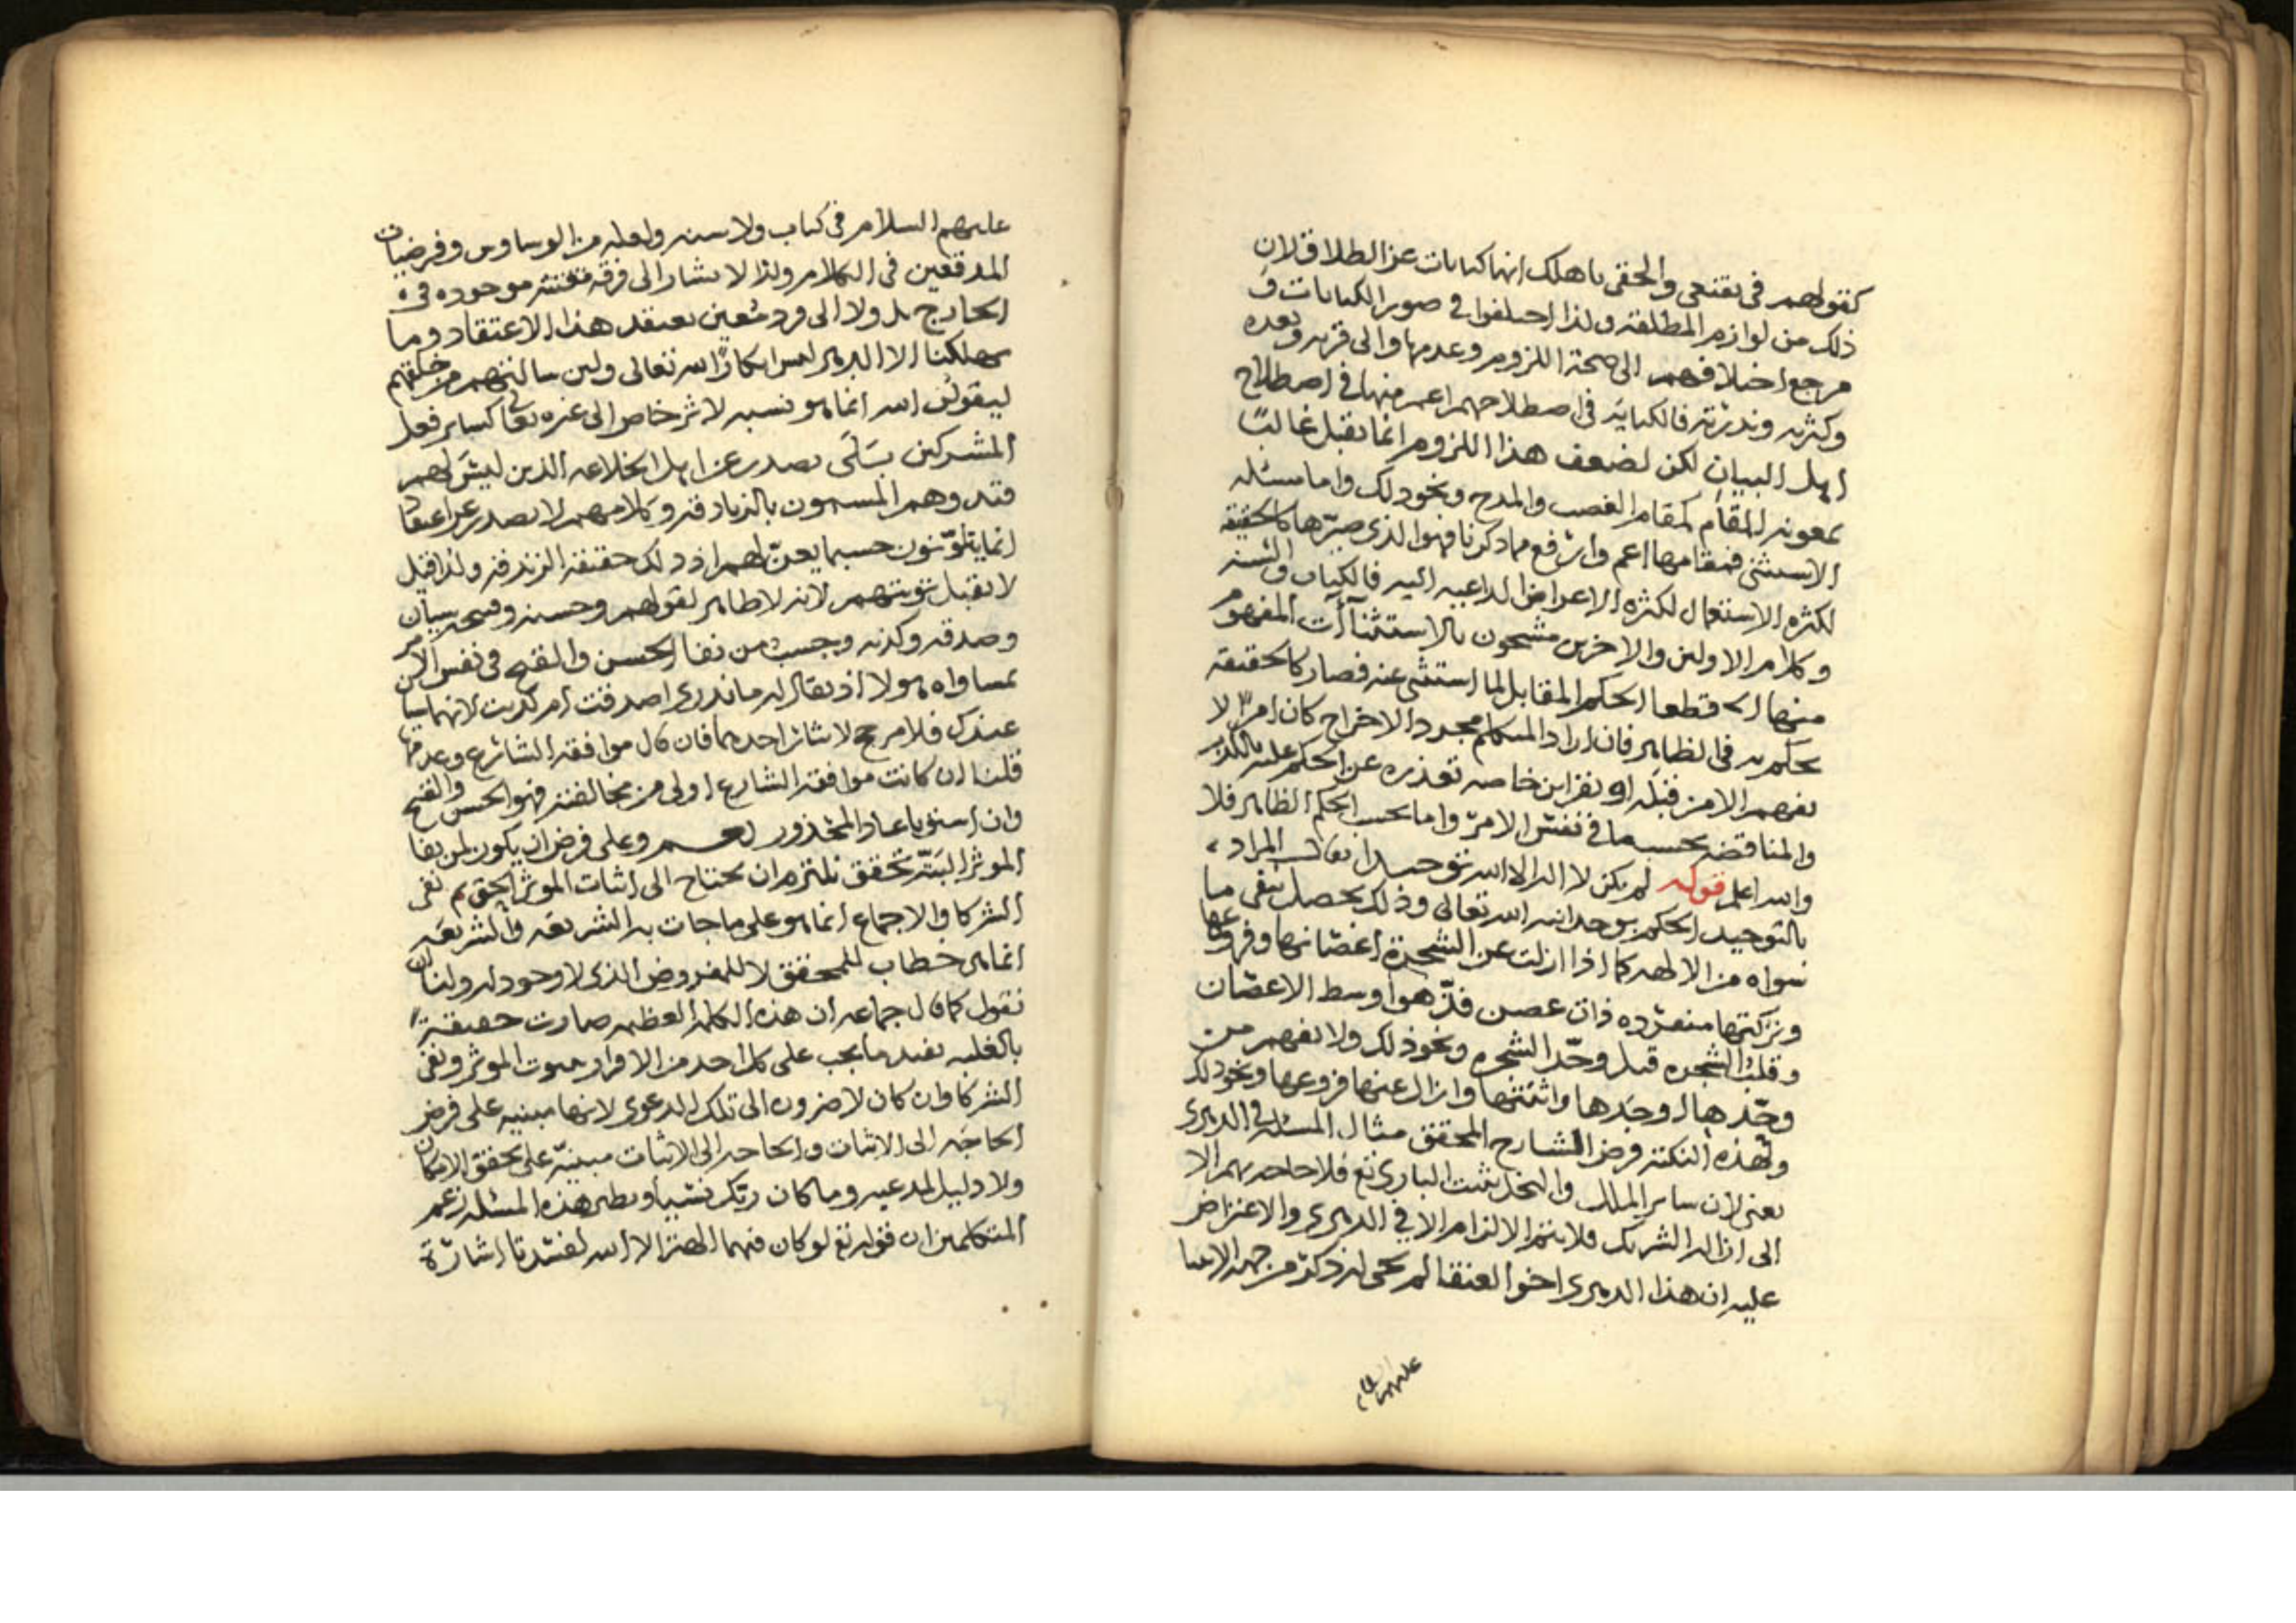 كقولهم في تقنعي والحقي باهلك انها كنايات عن الطلاق لان
ذلك من لوازم المطلقه ولذا اختلفوا في صور الكنايات و
مرجع اختلافهم الى صحة اللزوم وعدمها والى قربه وبعده
وكثرته وندرته فالكنايه في اصطلاحهم اعم منها في اصطلاح
اهل البيان لكن لضعف هذا اللزوم انما تقبل غالبًا
بمعونه المقام كمقام الغضب والمدح ونحو ذلك واما مسئله
الاستثنى فمقامها اعم وارفع مما ذكرنا فهو الذي صيرها كالحقيقه
لكثره الاستعمال لكثره الاعراض الداعيه اليه فالكتاب والسنه
وكلام الاولين والاخرين مشحون بالاستثناآت المفهوم
منها قطعا الحكم المقابل لما استثنى عنه فصار كالحقيقه
يحكم به في الظاهر فان اراد المتكلم مجرد الاخراج كان امرًا لا
يفهم الا من قبله او بقراين خاصه تعذره عن الحكم عليه بالكذب
والمناقضه بحسبها في نفس الامر واما بحسب الحكم الظاهر فلا
والله اعلم قوله لم يكن لا اله الا الله توحيدا يقال المراد
بالتوحيد الحكم بوحدانيه الله تعالى وذلك يحصل بنفي ما
سواه من الالهه كما اذا ازلت عن الشجرة اغصانها وفروعها
وتركتها منفرده ذات غصن فذ هو اوسط الاغصان
وقلت الشجره قيل وحّد الشجره ونحو ذلك ولا يفهم من
وحّدها اوجدها واثبتها وازال عنها فروعها ونحو ذلك
ولهذه النكته فرض الشارح المحقق مثال المسئله في الدهري
يعني لان ساير الملل والنحل يثبت الباري تع فلا حاجه بهم الا
الى ازاله الشريك فلا يتم الالزام الا في الدهري والاعتراض
عليه ان هذا الدهري اخو العنقا لم يجى له ذكر من جهه الانبيا
عليهم السلام
عليهم السلام في كتاب ولا سنه ولعله من الوساوس وفرضيات
المدققين في الكلام ولذا لا يشار الى فرقه موجوده في
الخارج بل ولا الى فرد معين يعتقد هذا الاعتقاد وما
يهلكنا الا الدهر ليس انكارًا لله تعالى ولين سالتهم من خلقهم
ليقولن الله انما هو نسبه لاثر خاص الى غيره تعالى كساير فعل
المشركين بلى يصدر عن اهل الخلاعه الذين ليس لهم
قيد وهم المسمون بالزنادقه وكلامهم لا يصدر عن اعتقاد
انما يتلوّنون حسبما يعنّ لهم اذ ذلك حقيقة الزندقه ولذا قيل
لا تقبل توبتهم لانه لا ظاهر لقولهم وحسنه وقبحه سيان
وصدقه وكذبه وبحسب من نفا الحسن والقبح في نفس الامر
مساواه هولا اذ يقال له ما ندري اصدقت ام كذبت لانهما سيان
عندك فلا مرجح لايثار احدهما فان قال موافقة الشارع وعدمها
قلنا ان كانت موافقة الشارع اولى من مخالفته فهو الحسن والقبح
وان استويا عاد المحذور نعم وعلى فرض ان يكون لمن نفا
الموثر البتّه تحقق نلتزم ان يحتاج الى اثبات الموثر الحق ثم نفى
الشركا والاجماع انما هو على ما جات به الشريعه والشريعه
انما هي خطاب للمحقق لا للمفروض الذي لا وجود له ولنا ان
نقول كما قال جماعه ان هذه الكلمه العظيمه صارت حقيقةً
بالغلبه تفيد ما يجب على كل احد من الاقرار بثبوت الموثر ونفى
الشركا وان كان لا ضروره الى تلك الدعوى لانها مبنيه على فرض
الحاجه الى الاثبات والحاجه الى الاثبات مبنيّه على تحقق الامكان
ولا دليل لمدعيه وما كان ربك نسيا ونظير هذه المسئله زعم
المتكلمين ان قوله تع لو كان فيهما الهة الا الله لفسدتا اشارة